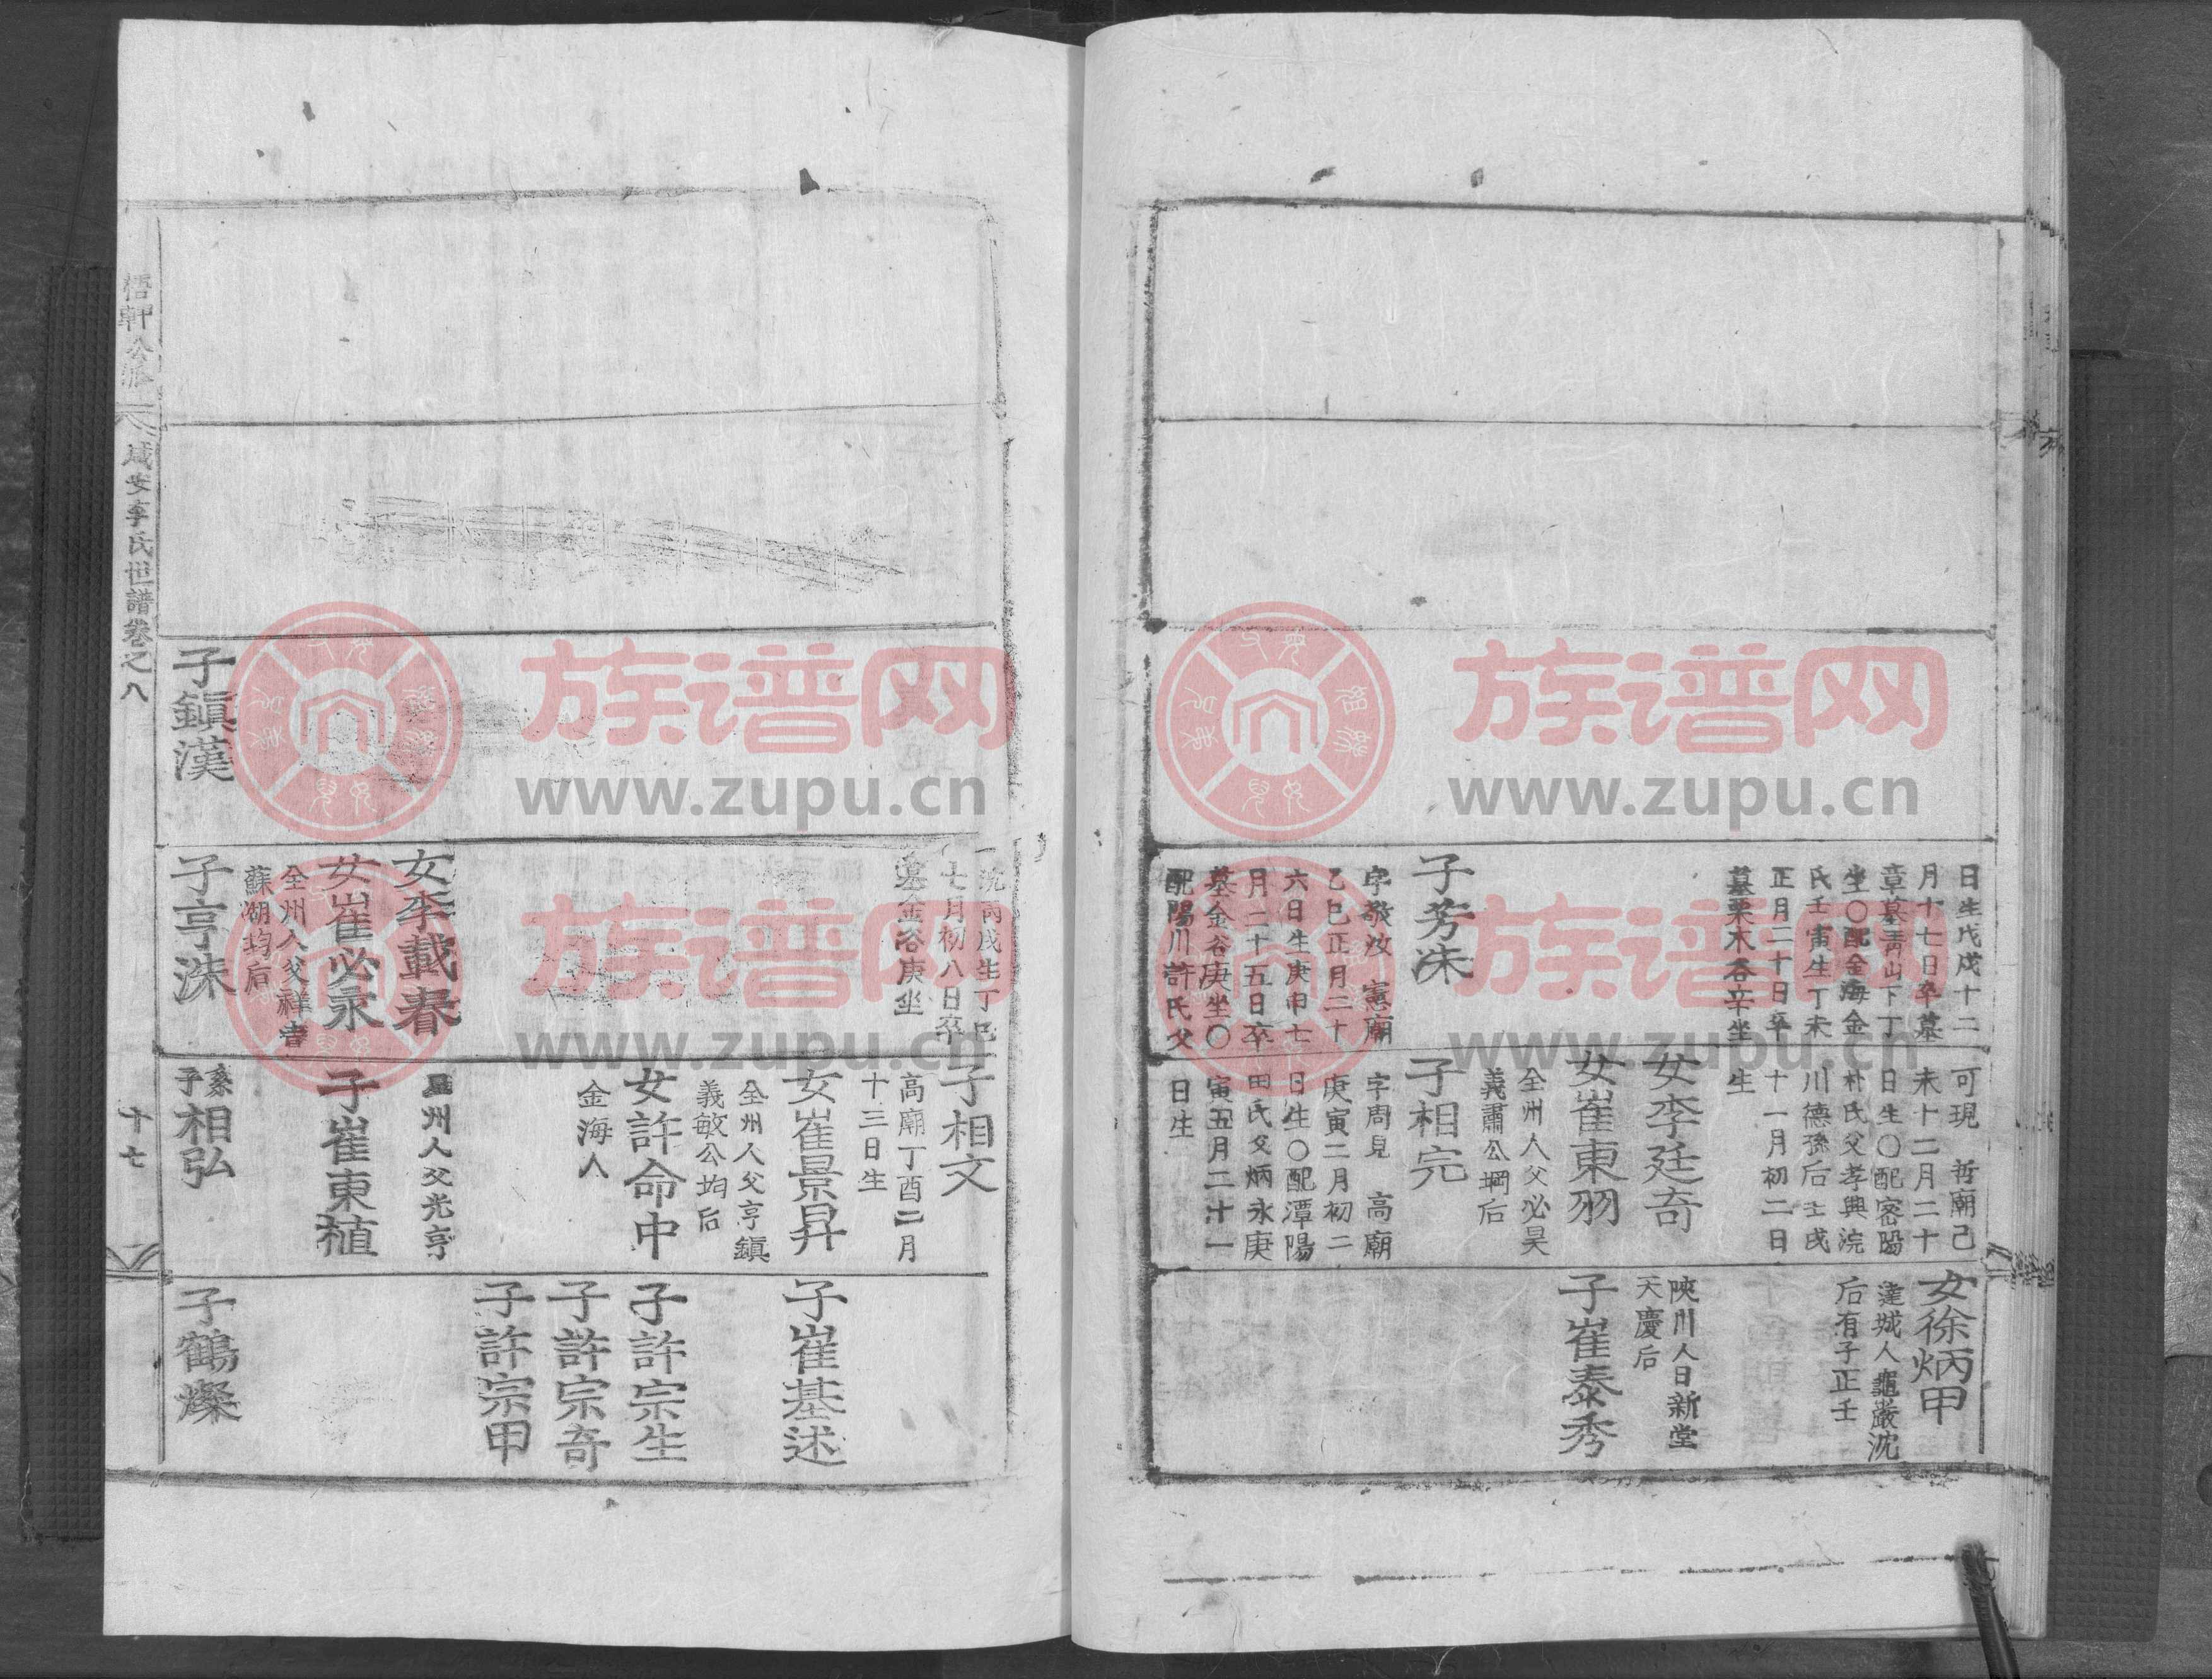 日生戊戌十二
月十七日卒墓
章墓靑山下丁
坐〇配金海金
氏壬寅生丁未
正月二十日卒
墓栗木谷辛坐
子芳洙
字敬汝 憲廟
乙巳正月二十
六日生庚申七
月二十五日卒
墓金谷庚坐〇
配陽川許氏父
可現 哲廟己
未十二月二十
日生〇配密陽
朴氏父孝興浣
川德孫后壬戌
十一月初二日
生
女李廷奇
女崔東羽
全州人父必昊
義肅公堈后
子相完
字周見 高廟
庚寅二月初二
日生〇配潭陽
田氏父炳永庚
寅五月二十一
日生
女徐炳甲
達城人龜巖沈
后有子正壬
陜川人日新堂
天慶后
子崔泰秀
子鎭漢
沈丙戌生丁巳
七月初八日卒
墓金谷庚坐
女李載春
女崔必永
全州人父祥吉
蘇湖均后
子亨洙
子相文
高廟丁酉二月
十三日生
女崔景昇
全州人父亨鎭
義敏公均后
女許命中
金海人
星州人父光亨
子崔東植
系子相弘
子崔基述
子許宗生
子許宗奇
子許宗甲
子鶴燦
梧軒公派
咸安李氏世譜卷之八
十七
族谱网
www.zupu.cn
族谱网
www.zupu.cn
族谱网
www.zupu.cn
族谱网
www.zupu.cn